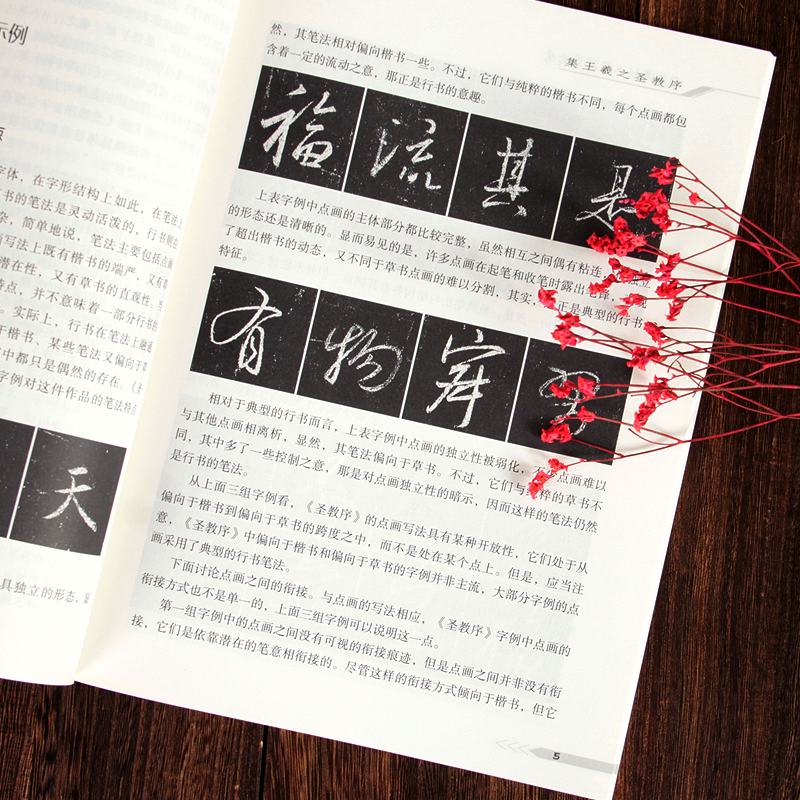 示例
字体，在字形结构上如此，在笔法
书的笔法是灵动活泼的，行书则
杂，简单地说，笔法主要包括点画
写法上既有楷书的端严，又有
潜在性，又有草书的直观性。当
特点，并不意味着一部分行书的
。实际上，行书在笔法上融通
于楷书、某些笔法又偏向于草
中都只是偶然的存在。《圣
字例对这件作品的笔法特点
天
具独立的形态，
集王羲之圣教序
然，其笔法相对偏向楷书一些。不过，它们与纯粹的楷书不同，每个点画都包
含着一定的流动之意，那正是行书的意趣。
福 流 其 是
上表字例中点画的主体部分都比较完整，虽然相互之间偶有粘连，独立
的形态还是清晰的。显而易见的是，许多点画在起笔和收笔时露出笔锋，
了超出楷书的动态，又不同于草书点画的难以分割，其实，正是典型的行书
特征。
有 物
相对于典型的行书而言，上表字例中点画的独立性被弱化，不少点画难以
与其他点画相离析，显然，其笔法偏向于草书。不过，它们与纯粹的草书不
同，其中多了一些控制之意，那是对点画独立性的暗示，因而这样的笔法仍然
是行书的笔法。
从上面三组字例看，《圣教序》的点画写法具有某种开放性，它们处于从
偏向于楷书到偏向于草书的跨度之中，而不是处在某个点上。但是，应当注
意，《圣教序》中偏向于楷书和偏向于草书的字例并非主流，大部分字例的点
画采用了典型的行书笔法。
下面讨论点画之间的衔接。与点画的写法相应，《圣教序》字例中点画的
衔接方式也不是单一的，上面三组字例可以说明这一点。
第一组字例中的点画之间没有可视的衔接痕迹，但是点画之间并非没有衔
接，它们是依靠潜在的笔意相衔接的。尽管这样的衔接方式倾向于楷书，但它
5